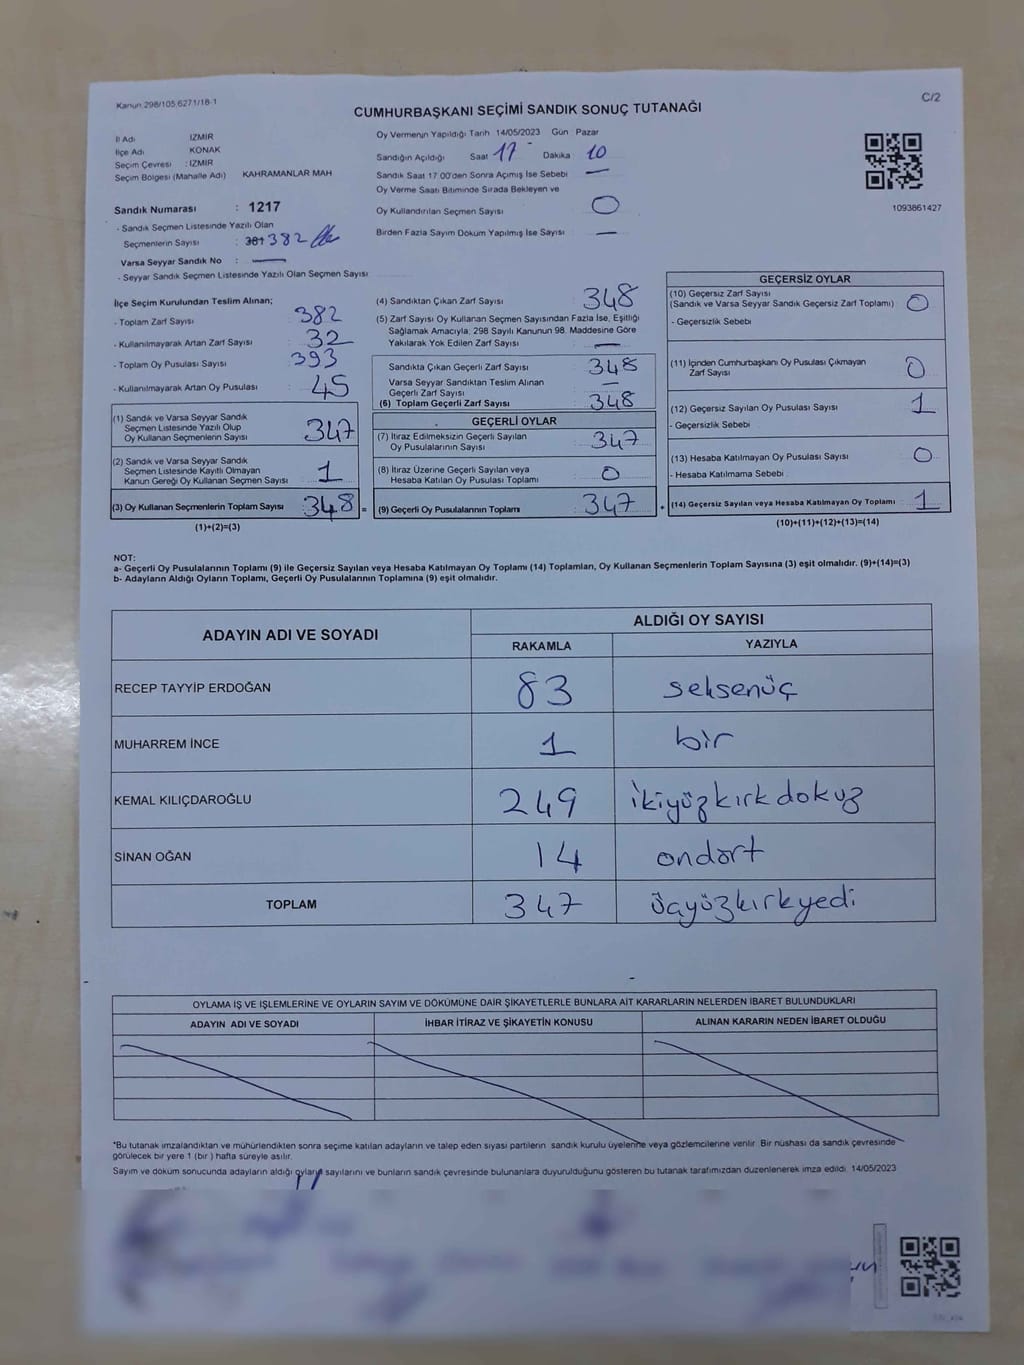 Kanun 298/105,6271/18-1
C/2
CUMHURBAŞKANI SEÇİMİ SANDIK SONUÇ TUTANAĞI
İl Adı İZMİR
İlçe Adı KONAK
Seçim Çevresi : İZMİR
Seçim Bölgesi (Mahalle Adı) KAHRAMANLAR MAH
Sandık Numarası : 1217
- Sandık Seçmen Listesinde Yazılı Olan
Seçmenlerin Sayısı : 381 382
Varsa Seyyar Sandık No : —
- Seyyar Sandık Seçmen Listesinde Yazılı Olan Seçmen Sayısı
Oy Vermenin Yapıldığı Tarih 14/05/2023 Gün Pazar
Sandığın Açıldığı Saat 17 Dakika 10
Sandık Saat 17 00'den Sonra Açımış İse Sebebi —
Oy Verme Saati Bitiminde Sırada Bekleyen ve
Oy Kullandırılan Seçmen Sayısı 0
Birden Fazla Sayım Döküm Yapılmış İse Sayısı —
1093861427
İlçe Seçim Kurulundan Teslim Alınan;
- Toplam Zarf Sayısı : 382
- Kullanılmayarak Artan Zarf Sayısı : 32
- Toplam Oy Pusulası Sayısı : 393
- Kullanılmayarak Artan Oy Pusulası : 45
(1) Sandık ve Varsa Seyyar Sandık
Seçmen Listesinde Yazılı Olup
Oy Kullanan Seçmenlerin Sayısı : 347
(2) Sandık ve Varsa Seyyar Sandık
Seçmen Listesinde Kayıtlı Olmayan
Kanun Gereği Oy Kullanan Seçmen Sayısı : 1
(3) Oy Kullanan Seçmenlerin Toplam Sayısı : 348 =
(1)+(2)=(3)
(4) Sandıktan Çıkan Zarf Sayısı 348
(5) Zarf Sayısı Oy Kullanan Seçmen Sayısından Fazla İse, Eşitliği
Sağlamak Amacıyla; 298 Sayılı Kanunun 98. Maddesine Göre
Yakılarak Yok Edilen Zarf Sayısı : —
Sandıkta Çıkan Geçerli Zarf Sayısı : 348
Varsa Seyyar Sandıktan Teslim Alınan
Geçerli Zarf Sayısı : —
(6) Toplam Geçerli Zarf Sayısı : 348
GEÇERLİ OYLAR
(7) İtiraz Edilmeksizin Geçerli Sayılan
Oy Pusulalarının Sayısı : 347
(8) İtiraz Üzerine Geçerli Sayılan veya
Hesaba Katılan Oy Pusulası Toplamı : 0
(9) Geçerli Oy Pusulalarının Toplamı : 347 +
GEÇERSİZ OYLAR
(10) Geçersiz Zarf Sayısı
(Sandık ve Varsa Seyyar Sandık Geçersiz Zarf Toplamı) : 0
- Geçersizlik Sebebi
(11) İçinden Cumhurbaşkanı Oy Pusulası Çıkmayan
Zarf Sayısı : 0
(12) Geçersiz Sayılan Oy Pusulası Sayısı : 1
- Geçersizlik Sebebi
(13) Hesaba Katılmayan Oy Pusulası Sayısı : 0
- Hesaba Katılmama Sebebi
(14) Geçersiz Sayılan veya Hesaba Katılmayan Oy Toplamı : 1
(10)+(11)+(12)+(13)=(14)
NOT:
a- Geçerli Oy Pusulalarının Toplamı (9) ile Geçersiz Sayılan veya Hesaba Katılmayan Oy Toplamı (14) Toplamları, Oy Kullanan Seçmenlerin Toplam Sayısına (3) eşit olmalıdır. (9)+(14)=(3)
b- Adayların Aldığı Oyların Toplamı, Geçerli Oy Pusulalarının Toplamına (9) eşit olmalıdır.
ADAYIN ADI VE SOYADI ALDIĞI OY SAYISI
RAKAMLA YAZIYLA
RECEP TAYYİP ERDOĞAN 83 seksenüç
MUHARREM İNCE 1 bir
KEMAL KILIÇDAROĞLU 249 ikiyüzkırkdokuz
SİNAN OĞAN 14 ondört
TOPLAM 347 üçyüzkırkyedi
OYLAMA İŞ VE İŞLEMLERİNE VE OYLARIN SAYIM VE DÖKÜMÜNE DAİR ŞİKAYETLERLE BUNLARA AİT KARARLARIN NELERDEN İBARET BULUNDUKLARI
ADAYIN ADI VE SOYADI İHBAR İTİRAZ VE ŞİKAYETİN KONUSU ALINAN KARARIN NEDEN İBARET OLDUĞU
*Bu tutanak imzalandıktan ve mühürlendikten sonra seçime katılan adayların ve talep eden siyasi partilerin sandık kurulu üyelerine veya gözlemcilerine verilir Bir nüshası da sandık çevresinde
görülecek bir yere 1 (bir ) hafta süreyle asılır.
Sayım ve döküm sonucunda adayların aldığı oyların sayılarını ve bunların sandık çevresinde bulunanlara duyurulduğunu gösteren bu tutanak tarafımızdan düzenlenerek imza edildi. 14/05/2023